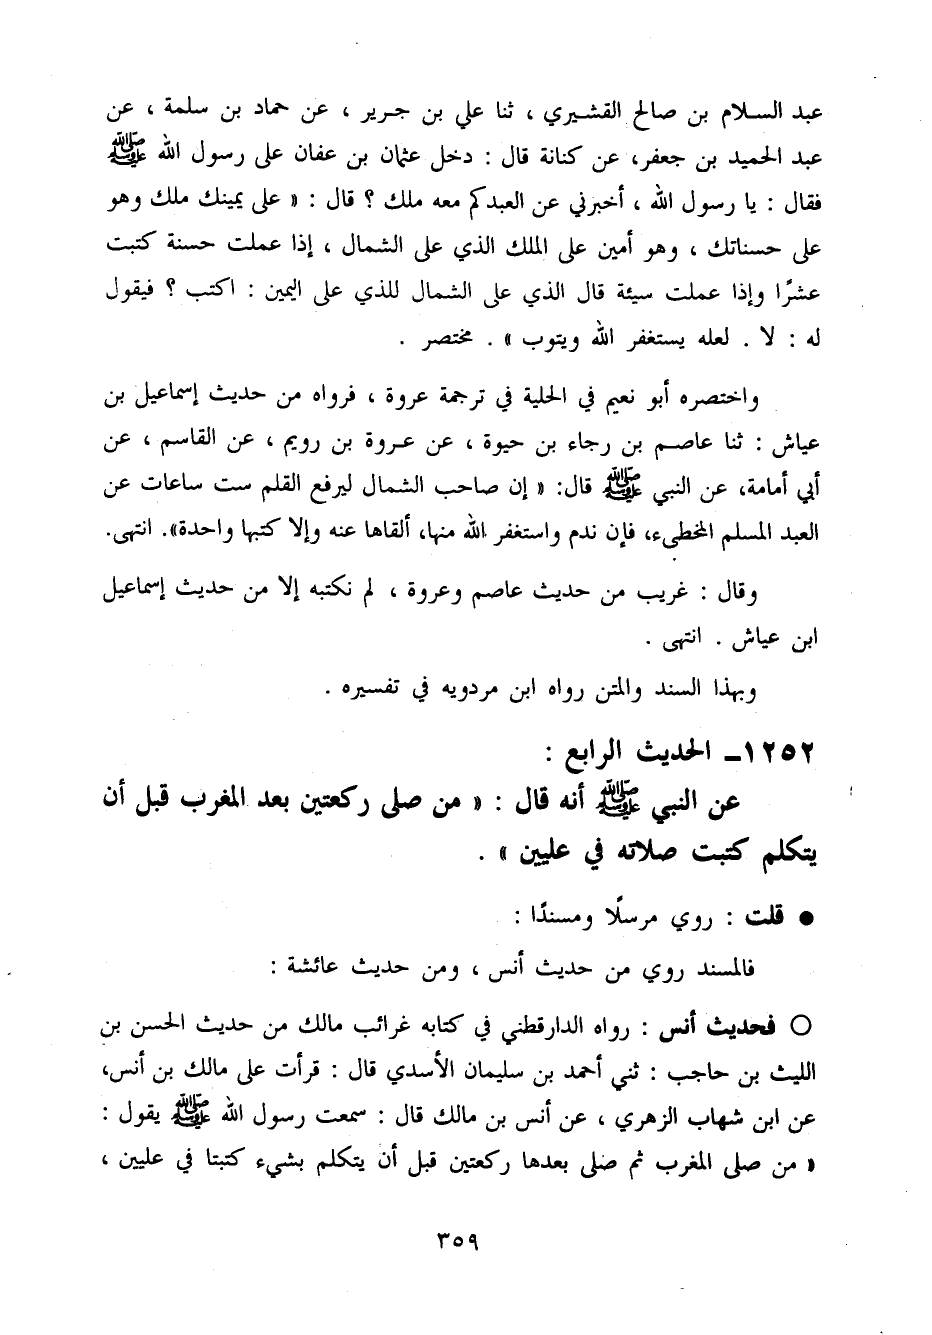 عبد السلام بن صالح القشيري ، ثنا علي بن جرير ، عن حماد بن سلمة ، عن
عبد الحميد بن جعفر، عن كنانة قال : دخل عثمان بن عفان على رسول الله ﷺ
فقال : يا رسول الله ، أخبرني عن العبد كم معه ملك ؟ قال : « على يمينك ملك وهو
على حسناتك ، وهو أمين على الملك الذي على الشمال ، إذا عملت حسنة كتبت
عشرًا وإذا عملت سيئة قال الذي على الشمال للذي على اليمين : اكتب ؟ فيقول
له : لا . لعله يستغفر الله ويتوب » . مختصر .
واختصره أبو نعيم في الحلية في ترجمة عروة ، فرواه من حديث إسماعيل بن
عياش : ثنا عاصم بن رجاء بن حيوة ، عن عروة بن رويم ، عن القاسم ، عن
أبي أمامة، عن النبي ﷺ قال: « إن صاحب الشمال ليرفع القلم ست ساعات عن
العبد المسلم المخطىء، فإن ندم واستغفر الله منها، ألقاها عنه وإلا كتبها واحدة». انتهى.
وقال : غريب من حديث عاصم وعروة ، لم نكتبه إلا من حديث إسماعيل
ابن عياش . انتهى .
وبهذا السند والمتن رواه ابن مردويه في تفسيره .
١٢٥٢ـ الحديث الرابع :
عن النبي ﷺ أنه قال : « من صلى ركعتين بعد المغرب قبل أن
يتكلم كتبت صلاته في عليين » .
● قلت : روي مرسلًا ومسندًا :
فالمسند روي من حديث أنس ، ومن حديث عائشة :
○ فحديث أنس : رواه الدارقطني في كتابه غرائب مالك من حديث الحسن بن
الليث بن حاجب : ثني أحمد بن سليمان الأسدي قال : قرأت على مالك بن أنس،
عن ابن شهاب الزهري ، عن أنس بن مالك قال : سمعت رسول الله ﷺ يقول :
« من صلى المغرب ثم صلى بعدها ركعتين قبل أن يتكلم بشيء كتبتا في عليين ،
٣٥٩